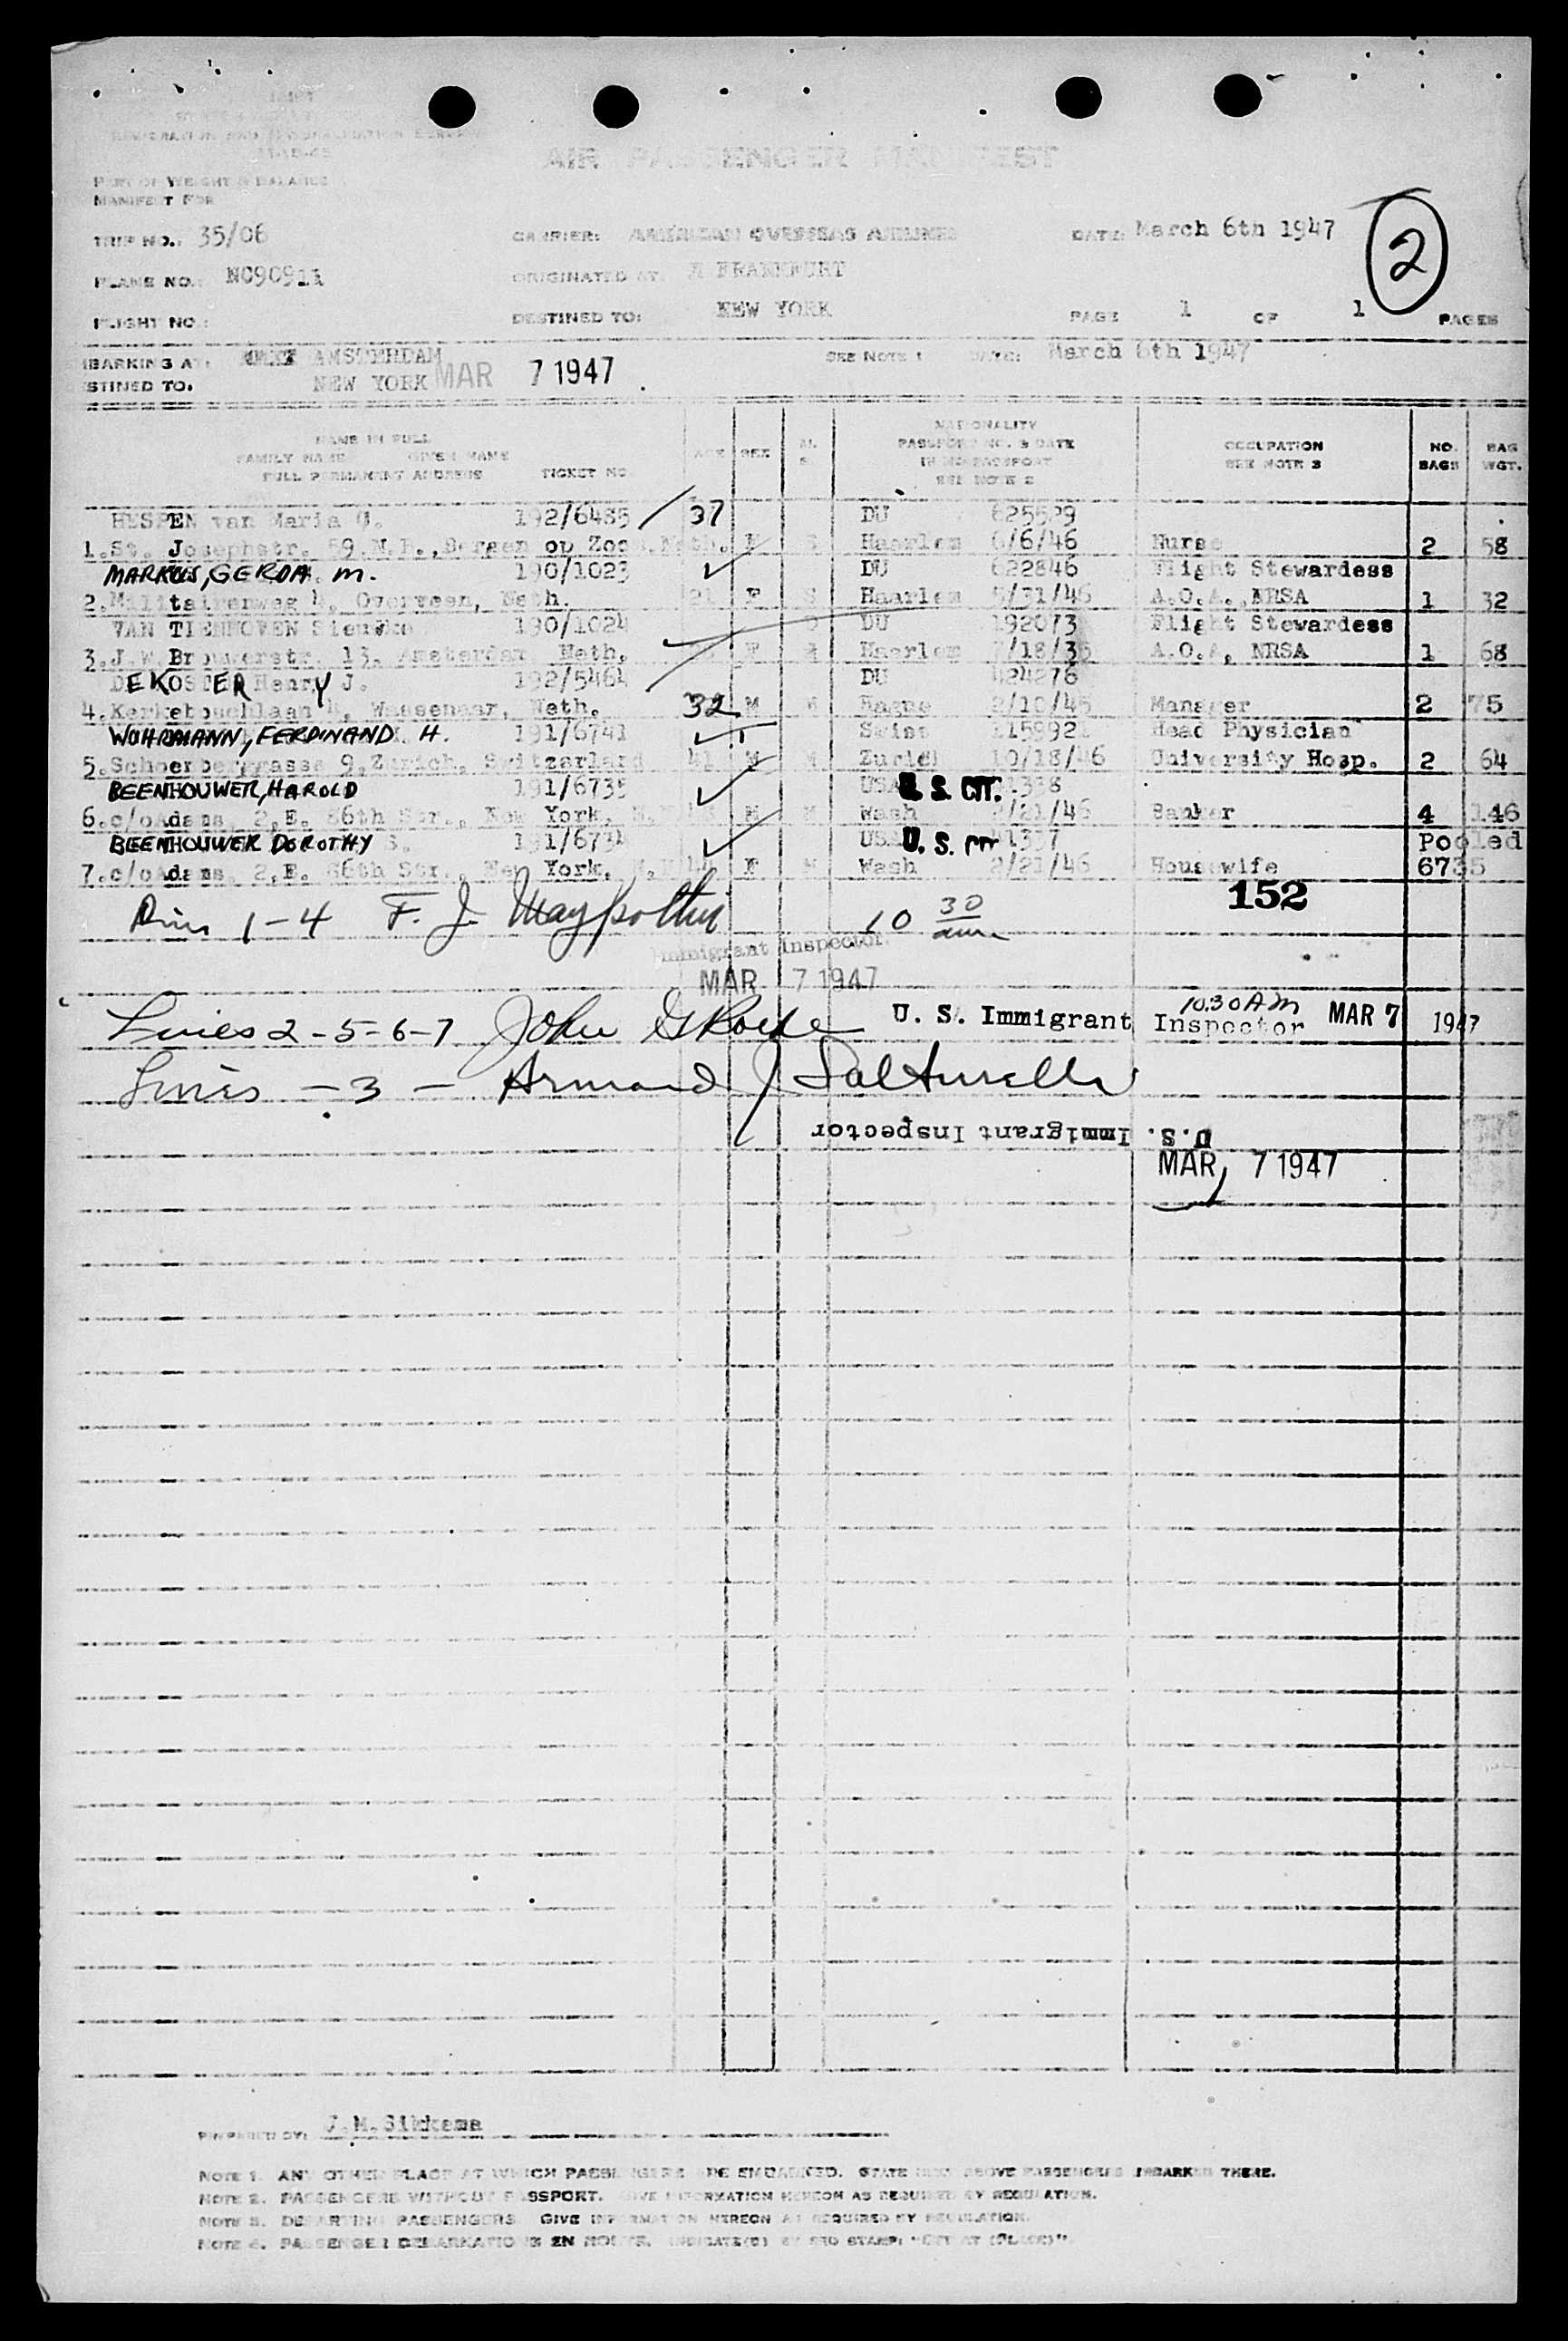 AIR PASSENGER MANIFEST
PART OF WEIGHT & BALANCE
MANIFEST FOR
TRIP NO.: 35/06 CARRIER: AMERICAN OVERSEAS AIRLINES DATE: March 6th 1947 2
PLANE NO.: NC90911 ORIGINATED AT: FRANKFURT
FLIGHT NO.: DESTINED TO: NEW YORK PAGE 1 OF 1 PAGES
MBARKING AT: AMSTERDAM SEE NOTE 1 DATE: March 6th 1947
STINED TO. NEW YORK MAR 7 1947
NAME IN FULL
FAMILY NAME GIVEN NAME
FULL PERMANENT ADDRESS TICKET NO. AGE SEX M. S. NATIONALITY PASSPORT NO. & DATE SEE NOTE 2 OCCUPATION SEE NOTE 3 NO. BAGS BAG WGT.
HESPEN van Maria 192/6485 37 DU 625529
1. St. Josephstr. 59 N.B., Bergen op Zoom, Neth. F S Haarlem 6/6/46 Nurse 2 58
MARKUS, GERDA M. 190/1023 DU 622846 Flight Stewardess
2. Militairenweg 4, Overveen, Neth. 21 F S Haarlem 5/31/46 A.O.A., NRSA 1 32
VAN TIENHOVEN 190/1024 DU 192073 Flight Stewardess
3. J.W. Brouwerstr. 13, Amsterdam Neth. F Haarlem /18/36 A.O.A, NRSA 1 68
DEKOSTER Henry J. 192/5464 DU 424276
4. Kerkeboschlaan 4, Wassenaar, Neth. 32 M M Hague 2/10/46 Manager 2 75
WUHRMANN, FERDINAND H. 191/6741 Swiss 1159921 Head Physician
5. Schoenberggasse 9, Zurich, Switzerland 41 M M Zurich 10/18/46 University Hosp. 2 64
BEENHOUWER, HAROLD 191/6735 USA U. S. CIT. 1338
6. c/o Adams, 2, E. 86th Str., New York, N.Y. M M Wash /21/46 Banker 4 146
BEENHOUWER DOROTHY S. 191/6734 USA U. S. 41337 Pooled
7. c/o Adams, 2, E. 86th Str., New York, N.Y. 44 F M Wash 2/21/46 Housewife 6735
152
1-4 F. J. 10 30 am
Immigrant Inspector
MAR 7 1947
Lines 2-5-6-7 John U. S. Immigrant Inspector 10.30 AM MAR 7 1947
Lines - 3 - Armand J
U.S. Immigrant Inspector
MAR 7 1947
PREPARED BY: J.M. Sikkema
NOTE 1. ANY OTHER PLACE AT WHICH PASSENGERS ARE EMBARKED. STATE NEXT ABOVE PASSENGERS EMBARKED THERE.
NOTE 2. PASSENGERS WITHOUT PASSPORT. GIVE INFORMATION HEREON AS REQUIRED BY REGULATION.
NOTE 3. DEPARTING PASSENGERS. GIVE INFORMATION HEREON AS REQUIRED BY REGULATION.
NOTE 4. PASSENGER DEBARKATIONS EN ROUTE. INDICATE(D) BY STAMP: "OFF AT (PLACE)".